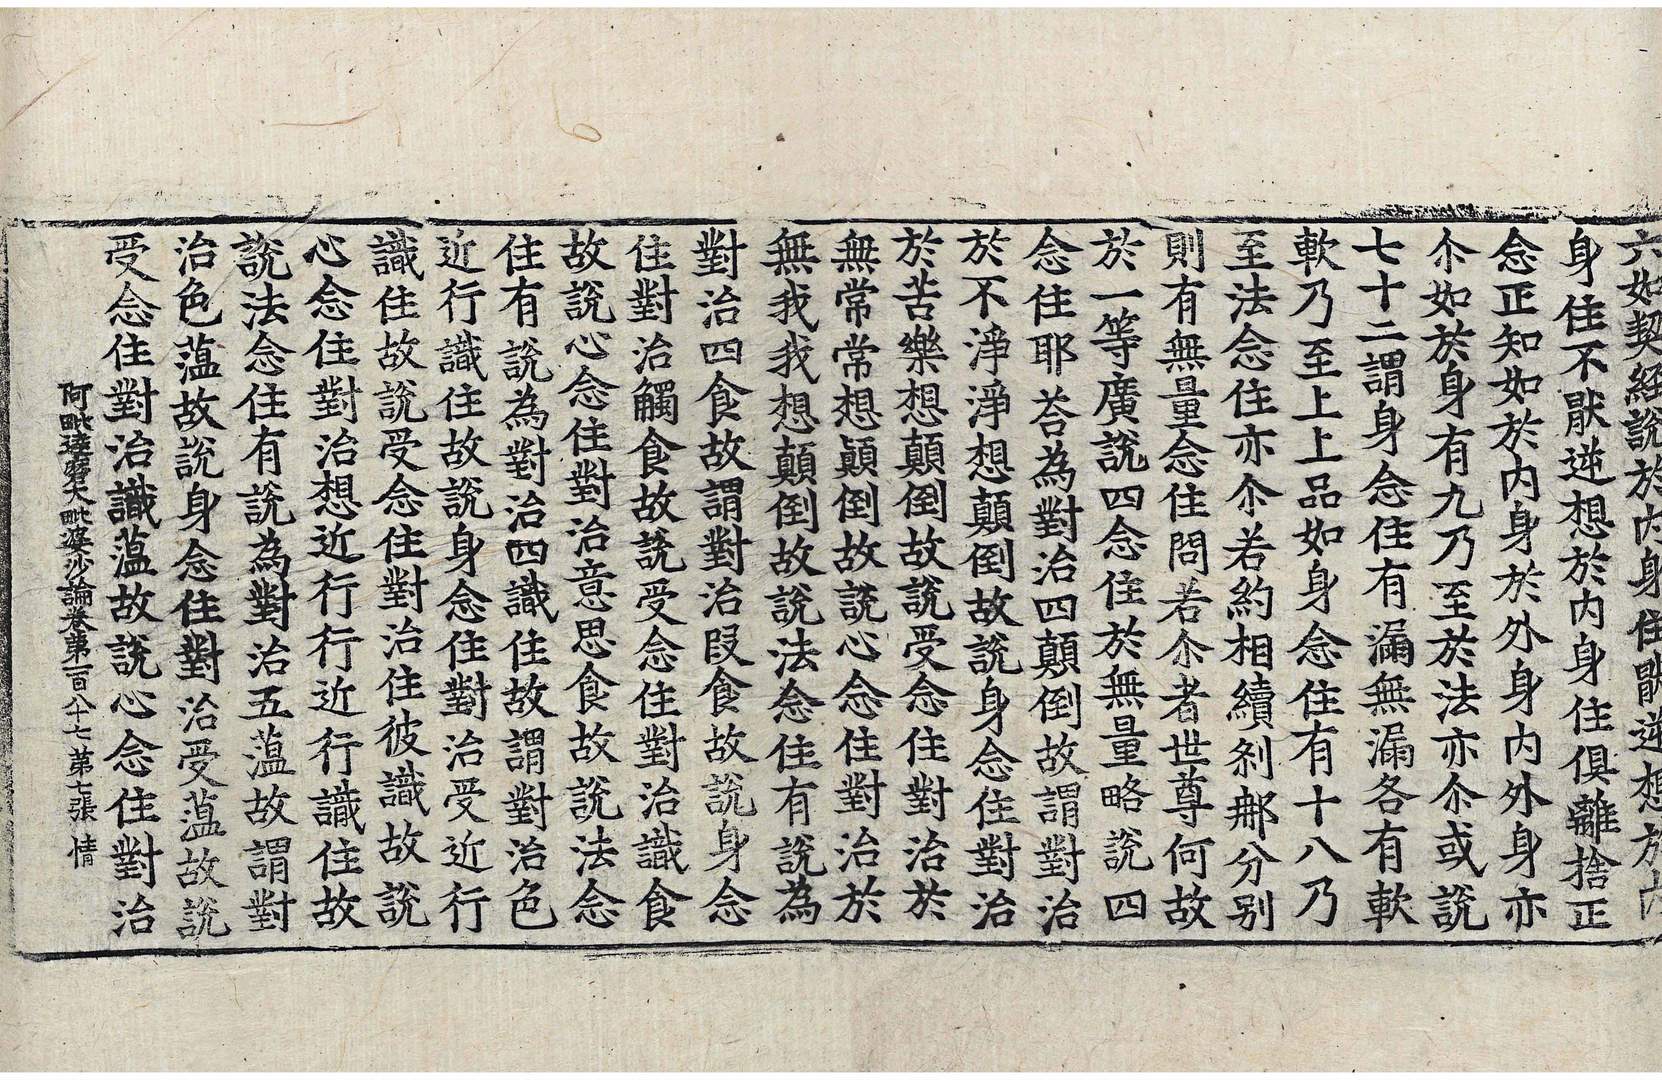 六如契経說於內身住猒逆想於內
身住不猒逆想於內身住俱離捨正
念正知如於內身於外身內外身亦
尒如於身有九乃至於法亦尒或說
七十二謂身念住有漏無漏各有軟
軟乃至上上品如身念住有十八乃
至法念住亦尒若約相續剎那分別
則有無量念住問若尒者世尊何故
於一等廣說四念住於無量略說四
念住耶荅為對治四顛倒故謂對治
於不淨淨想顛倒故說身念住對治
於苦樂想顛倒故說受念住對治於
無常常想顛倒故說心念住對治於
無我我想顛倒故說法念住有說為
對治四食故謂對治段食故說身念
住對治觸食故說受念住對治識食
故說心念住對治意思食故說法念
住有說為對治四識住故謂對治色
近行識住故說身念住對治受近行
識住故說受念住對治住彼識故說
心念住對治想近行行近行識住故
說法念住有說為對治五蕰故謂對
治色蕰故說身念住對治受蕰故說
受念住對治識蕰故說心念住對治
阿毗達磨大毗婆沙論卷第一百八十七 第七張 情